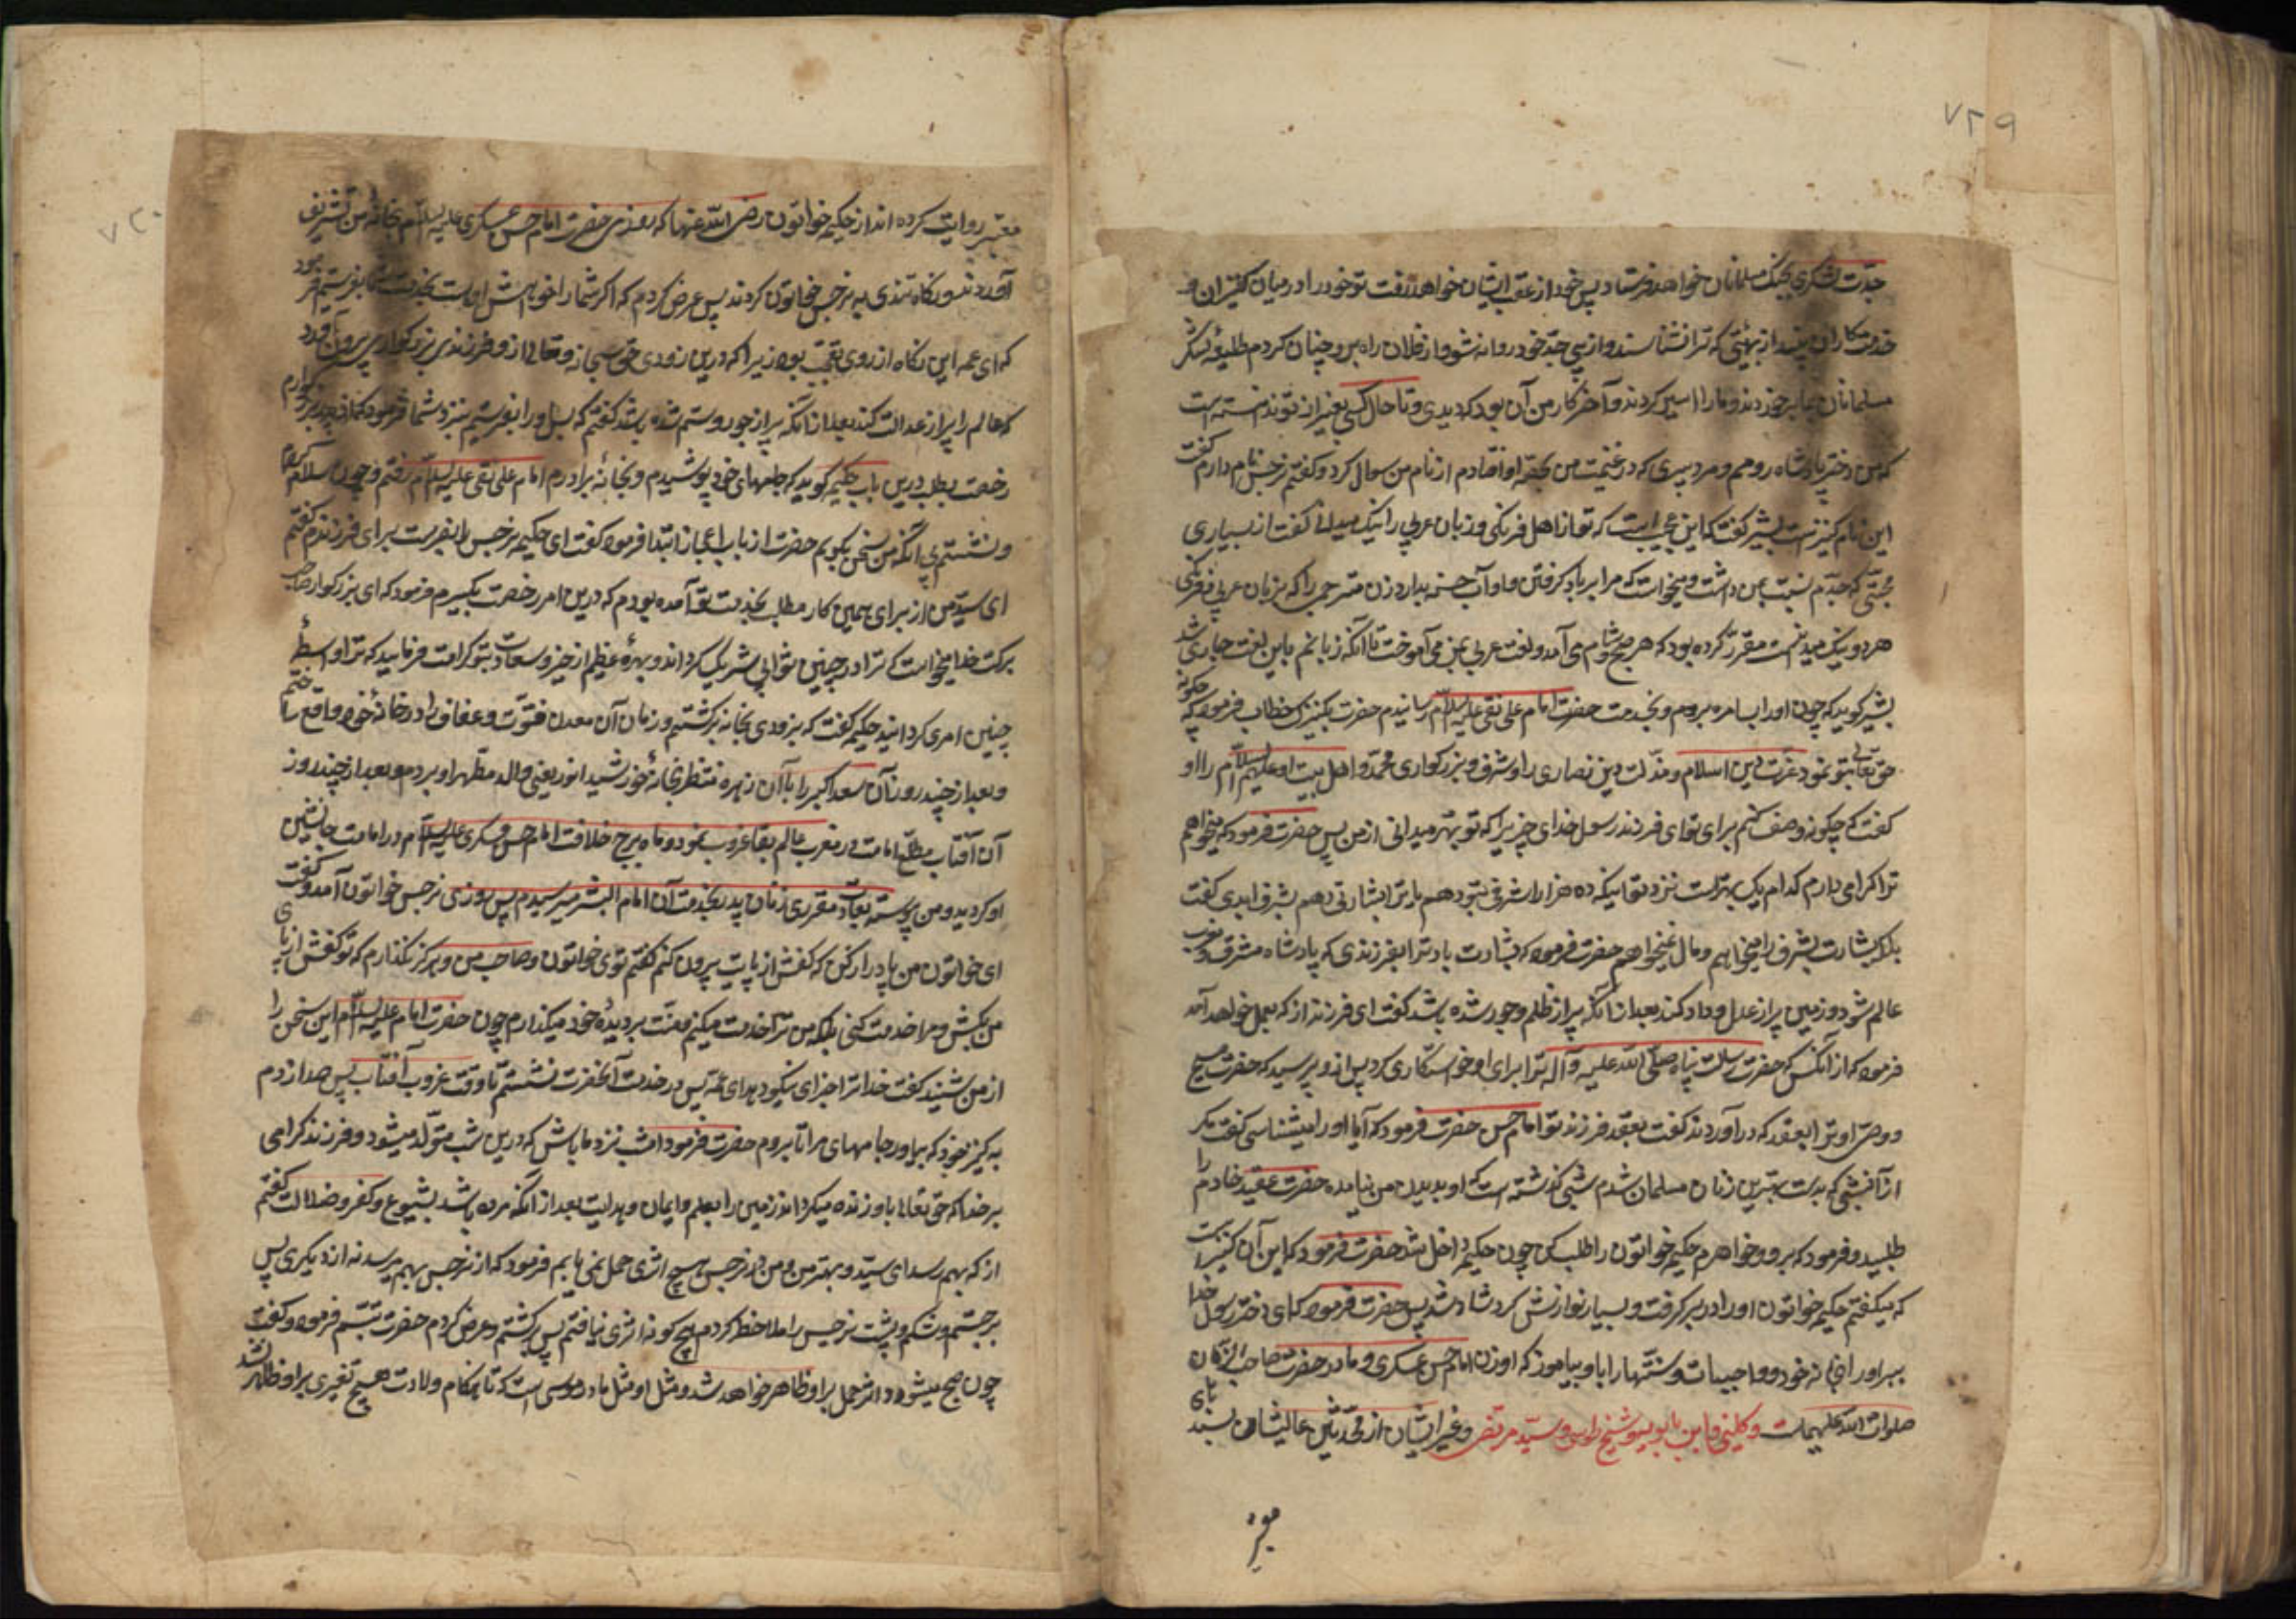 ۷۲۹
جدّت لشکری بجنک مسلمانان خواهد فرستاد پس خود از عقب ایشان خواهد رفت تو خود را در میان کنیزان و
خدمتکاران بینداز بهیئتی که ترا نشناسند و از پی جدّ خود روانه شو و از فلان راه برو چنان کردم طلیعهٔ لشکر
مسلمانان بما برخوردند و ما را اسیر کردند و آخر کار من آن بود که دیدی و تا حال کسی بغیر از تو ندانسته است
که من دختر پادشاه رومم و مرد پیری که در غنیمت من بحصّه او افتادم از نام من سوال کرد و کفتم نرجس نام دارم کفت
این نام کنیزانست بشیر کفت که این عجیب است که تو از اهل فرنکی و زبان عربی را نیک میدانی کفت از بسیاری
محبّتی که جدّم نسبت بمن داشت و میخواست که مرا بر یاد کرفتن اداب حسنه بدارد زن مترجمی را که بزبان عربی و فرنکی
هر دو نیک میدانست مقرّر کرده بود که هر صبح و شام می آمد و لغت عربی بمن می آموخت تا آنکه زبانم باین لغت جاری شد
بشیر کوید که چون او را بسامره بردم و بخدمت حضرت امام علی نقی علیه السلام رسانیدم حضرت بکنیزک خطاب فرمود که چکونه
حق تعالی بتو نمود عزّت دین اسلام و مذلّت دین نصاری را و شرف و بزرکواری محمّد و اهل بیت او علیهم السلام را او
کفت که چکونه وصف کنم برای تو ای فرزند رسول خدای چیزیرا که تو بهتر میدانی از من پس حضرت فرمود که میخواهم
ترا کرامی دارم کدام یک بهتر است نزد تو اینکه ده هزار اشرفی بتو دهم یا ترا بشارتی دهم بشرف ابدی کفت
بلکه بشارت بشرف را میخواهم و مال نمیخواهم حضرت فرمود که بشارت باد ترا بفرزندی که پادشاه مشرق و مغرب
عالم شود و زمین پر از عدل و داد کند بعد از آنکه پر از ظلم و جور شده باشد کفت این فرزند از که بعمل خواهد آمد
فرمود که از آنکس که حضرت رسالت پناه صلّی الله علیه و آله ترا برای او خواستکاری کرد پس از و پرسید که حضرت مسیح
و وصیّ او ترا بعقد که درآوردند کفت بعقد فرزند تو امام حسن حضرت فرمود که آیا او را میشناسی کفت مکر
از آن شبی که بدست بهترین زنان مسلمان شدم شبی کذشته است که او بدیدن من نیامده حضرت عقید خادم را
طلبید و فرمود که برو و خواهرم حکیمه خواتون را طلب کن چون حکیمه داخل شد حضرت فرمود که این آن کنیزست
که میکفتم حکیمه خواتون او را در بر کرفت و بسیار نوازش کرد شاد شد پس حضرت فرمود که ای دختر رسول خدا
ببر او را بخانه خود و واجبات و سنّتها را باو بیاموز که او زن امام حسن عسکری و مادر حضرت صاحب الزمان
صلوات الله علیهماست و کلینی و ابن بابویه و شیخ طوسی و سیّد مرتضی و غیر ایشان از محدّثین عالیشان بسندهای
معتبر
معتبر روایت کرده اند از حکیمه خواتون رضی الله عنها که روزی حضرت امام حسن عسکری علیه السلام بخانهٔ من تشریف
آوردند و نکاه تندی به نرجس خواتون کردند پس عرض کردم که اکر شما را خواهش او است بخدمت شما بفرستیم فرمود
که ای عمه این نکاه از روی تعجّب بود زیرا که درین زودی حق سبحانه و تعالی از و فرزندی بزرکوار بیرون آورد
که عالم را پر از عدالت کند بعد از آنکه پر از جور و ستم شده باشد کفتم که پس او را بفرستیم بنزد شما فرمود که از پدر بزرکوارم
رخصت بطلب درین باب حکیمه کوید که جامهای خود پوشیدم و بخانهٔ برادرم امام علی نقی علیه السلام رفتم و چون سلام کردم
و نشستم بی آنکه من سخن بکویم حضرت از باب اعجاز ابتدا فرمود کفت ای حکیمه نرجس را بفرست برای فرزندم کفتم
ای سیّد من از برای همین کار مطلب بخدمت تو آمده بودم که درین امر رخصت بکیرم فرمود که ای بزرکوار صاحب
برکت خدا میخواست که ترا در چنین ثوابی شریک کرداند و بهرهٔ عظیم از خیر و سعادت بتو کرامت فرماید که ترا واسطهٔ
چنین امری کردانید حکیمه کفت که بزودی بخانه برکشتم و زفاف آن معدن فتوّت و عفاف را در خانهٔ خود واقع ساختم
و بعد از چند روز آن سعد اکبر را با آن زهره منظر بخانهٔ خورشید انور یعنی والد مطهر او بردم و بعد از چند روز
آن آفتاب مطلع امامت در مغرب عالم بقا غروب نمود و ماه برج خلافت امام حسن عسکری علیه السلام در امامت جانشین
او کردید و من پیوسته بعادت مقرری زمان پدر بخدمت آن امام البشر میرسیدم پس روزی نرجس خواتون آمد و کفت
ای خواتون من پا دراز کن که کفش از پایت بیرون کنم کفتم توی خواتون و صاحب من و هرکز نکذارم که تو کفش از پای
من بکشی و مرا خدمت کنی بلکه من ترا خدمت میکنم و منّت بر دیدهٔ خود میکذارم چون حضرت امام علیه السلام این سخن را
از من شنید کفت خدا ترا جزای نیکو دهد ای عمّه پس در خدمت آنحضرت نشستم تا وقت غروب آفتاب پس صدا زدم
به کنیز خود که بیاور جامهای مرا تا بروم حضرت فرمود امشب نزد ما باش که درین شب متولّد میشود فرزند کرامی
بر خدا که حق تعالی باو زنده میکرداند زمین را بعلم و ایمان و هدایت بعد از آنکه مرده باشد بشیوع کفر و ضلالت کفتم
از که بهم رسد ای سیّد و بهتر من و من در نرجس هیچ اثری حمل نمی یابم فرمود که از نرجس بهم میرسد نه از دیکری پس
برجستم و شکم و پشت نرجس را ملاحظه کردم هیچ کونه اثری نیافتم پس برکشتم و عرض کردم حضرت تبسّم فرمود و کفت
چون صبح میشود اثر حمل بر او ظاهر خواهد شد و مثل او مثل مادر موسی است که تا هنکام ولادت هیچ تغیری بر او ظاهر نشد